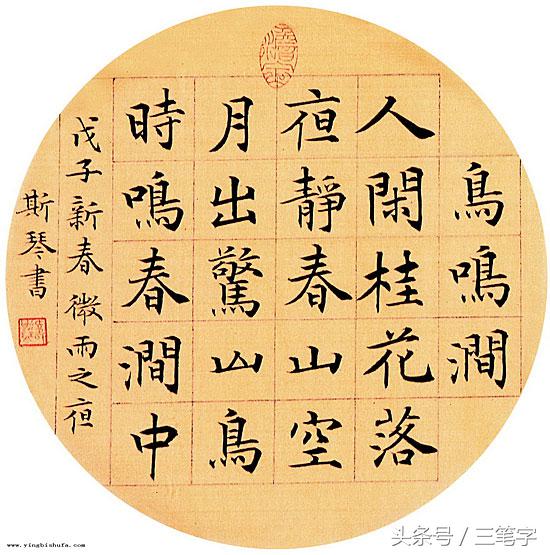 鳥鳴澗
人閑桂花落
夜靜春山空
月出驚山鳥
時鳴春澗中
戊子新春微雨之夜
斯琴書
www.yingbishufa.com
头条号/三笔字